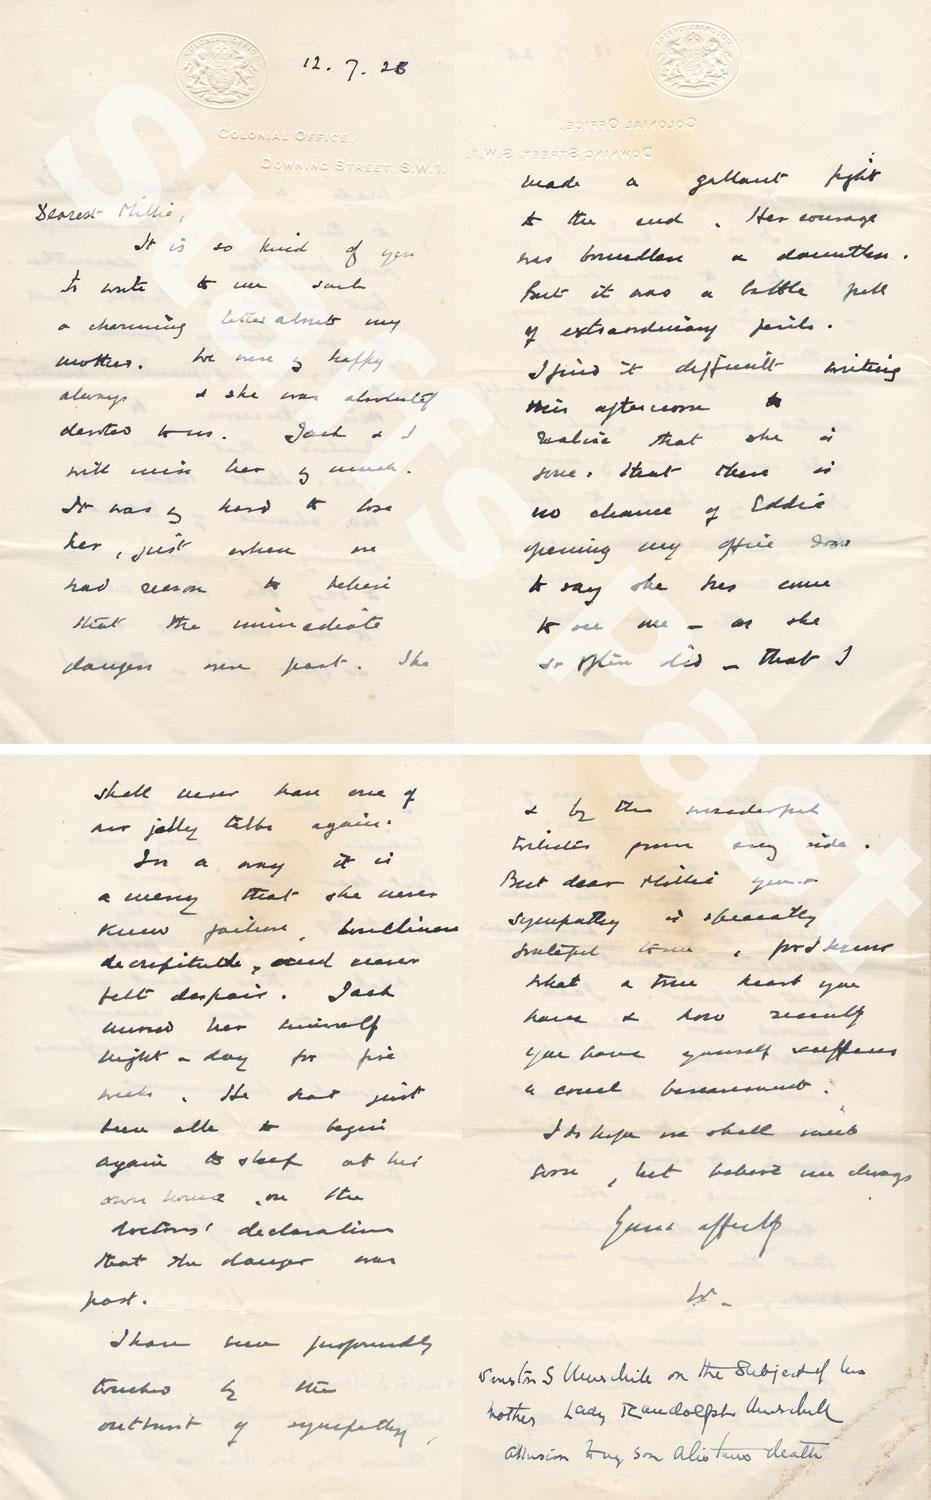 COLONIAL OFFICE
12. 7. 28
COLONIAL OFFICE,
DOWNING STREET, S.W.1.
Dearest Millie,
It is so kind of you
to write to me such
a charming letter about my
mother. We were so happy
always & she was absolutely
devoted to us. Jack & I
will miss her so much.
It was so hard to lose
her, just when we
had reason to believe
that the immediate
dangers were past. She
made a gallant fight
to the end. Her courage
was boundless & dauntless.
But it was a battle full
of extraordinary perils.
I find it difficult writing
this afternoon to
realise that she is
gone: that there is
no chance of Eddie
opening my office door
to say she has come
to see me – as she
so often did – that I
shall never have one of
our jolly talks again.
In a way it is
a mercy that she never
knew failure, loneliness
decrepitude, and never
felt despair. Jack
nursed her himself
night & day for five
weeks. He had just
been able to begin
again to sleep at his
own house, on the
doctors' declaration
that the danger was
past.
I have been profoundly
touched by the
outburst of sympathy,
& by the wonderful
tributes from every side.
But dear Millie your
sympathy is specially
grateful to me, for I know
what a true heart you
have & how recently
you have yourself suffered
a cruel bereavement.
I do hope we shall meet
soon, but believe me always
Yours affectly
W.
Winston S Churchill on the Subject of his
mother Lady Randolph Churchill
Allusion to my son Alistairs death
Stars of the Past